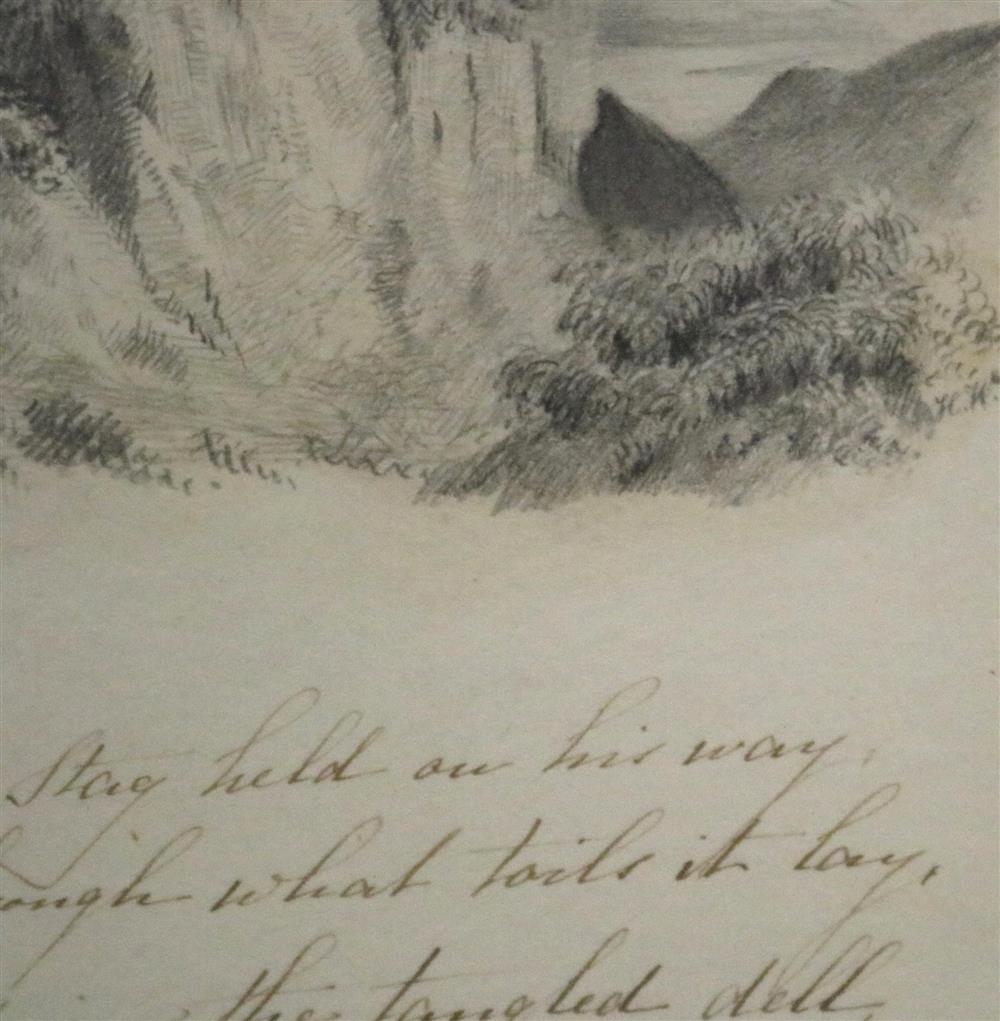 H.H.
Stag held on his way,
ough what toils it lay,
the tangled dell,